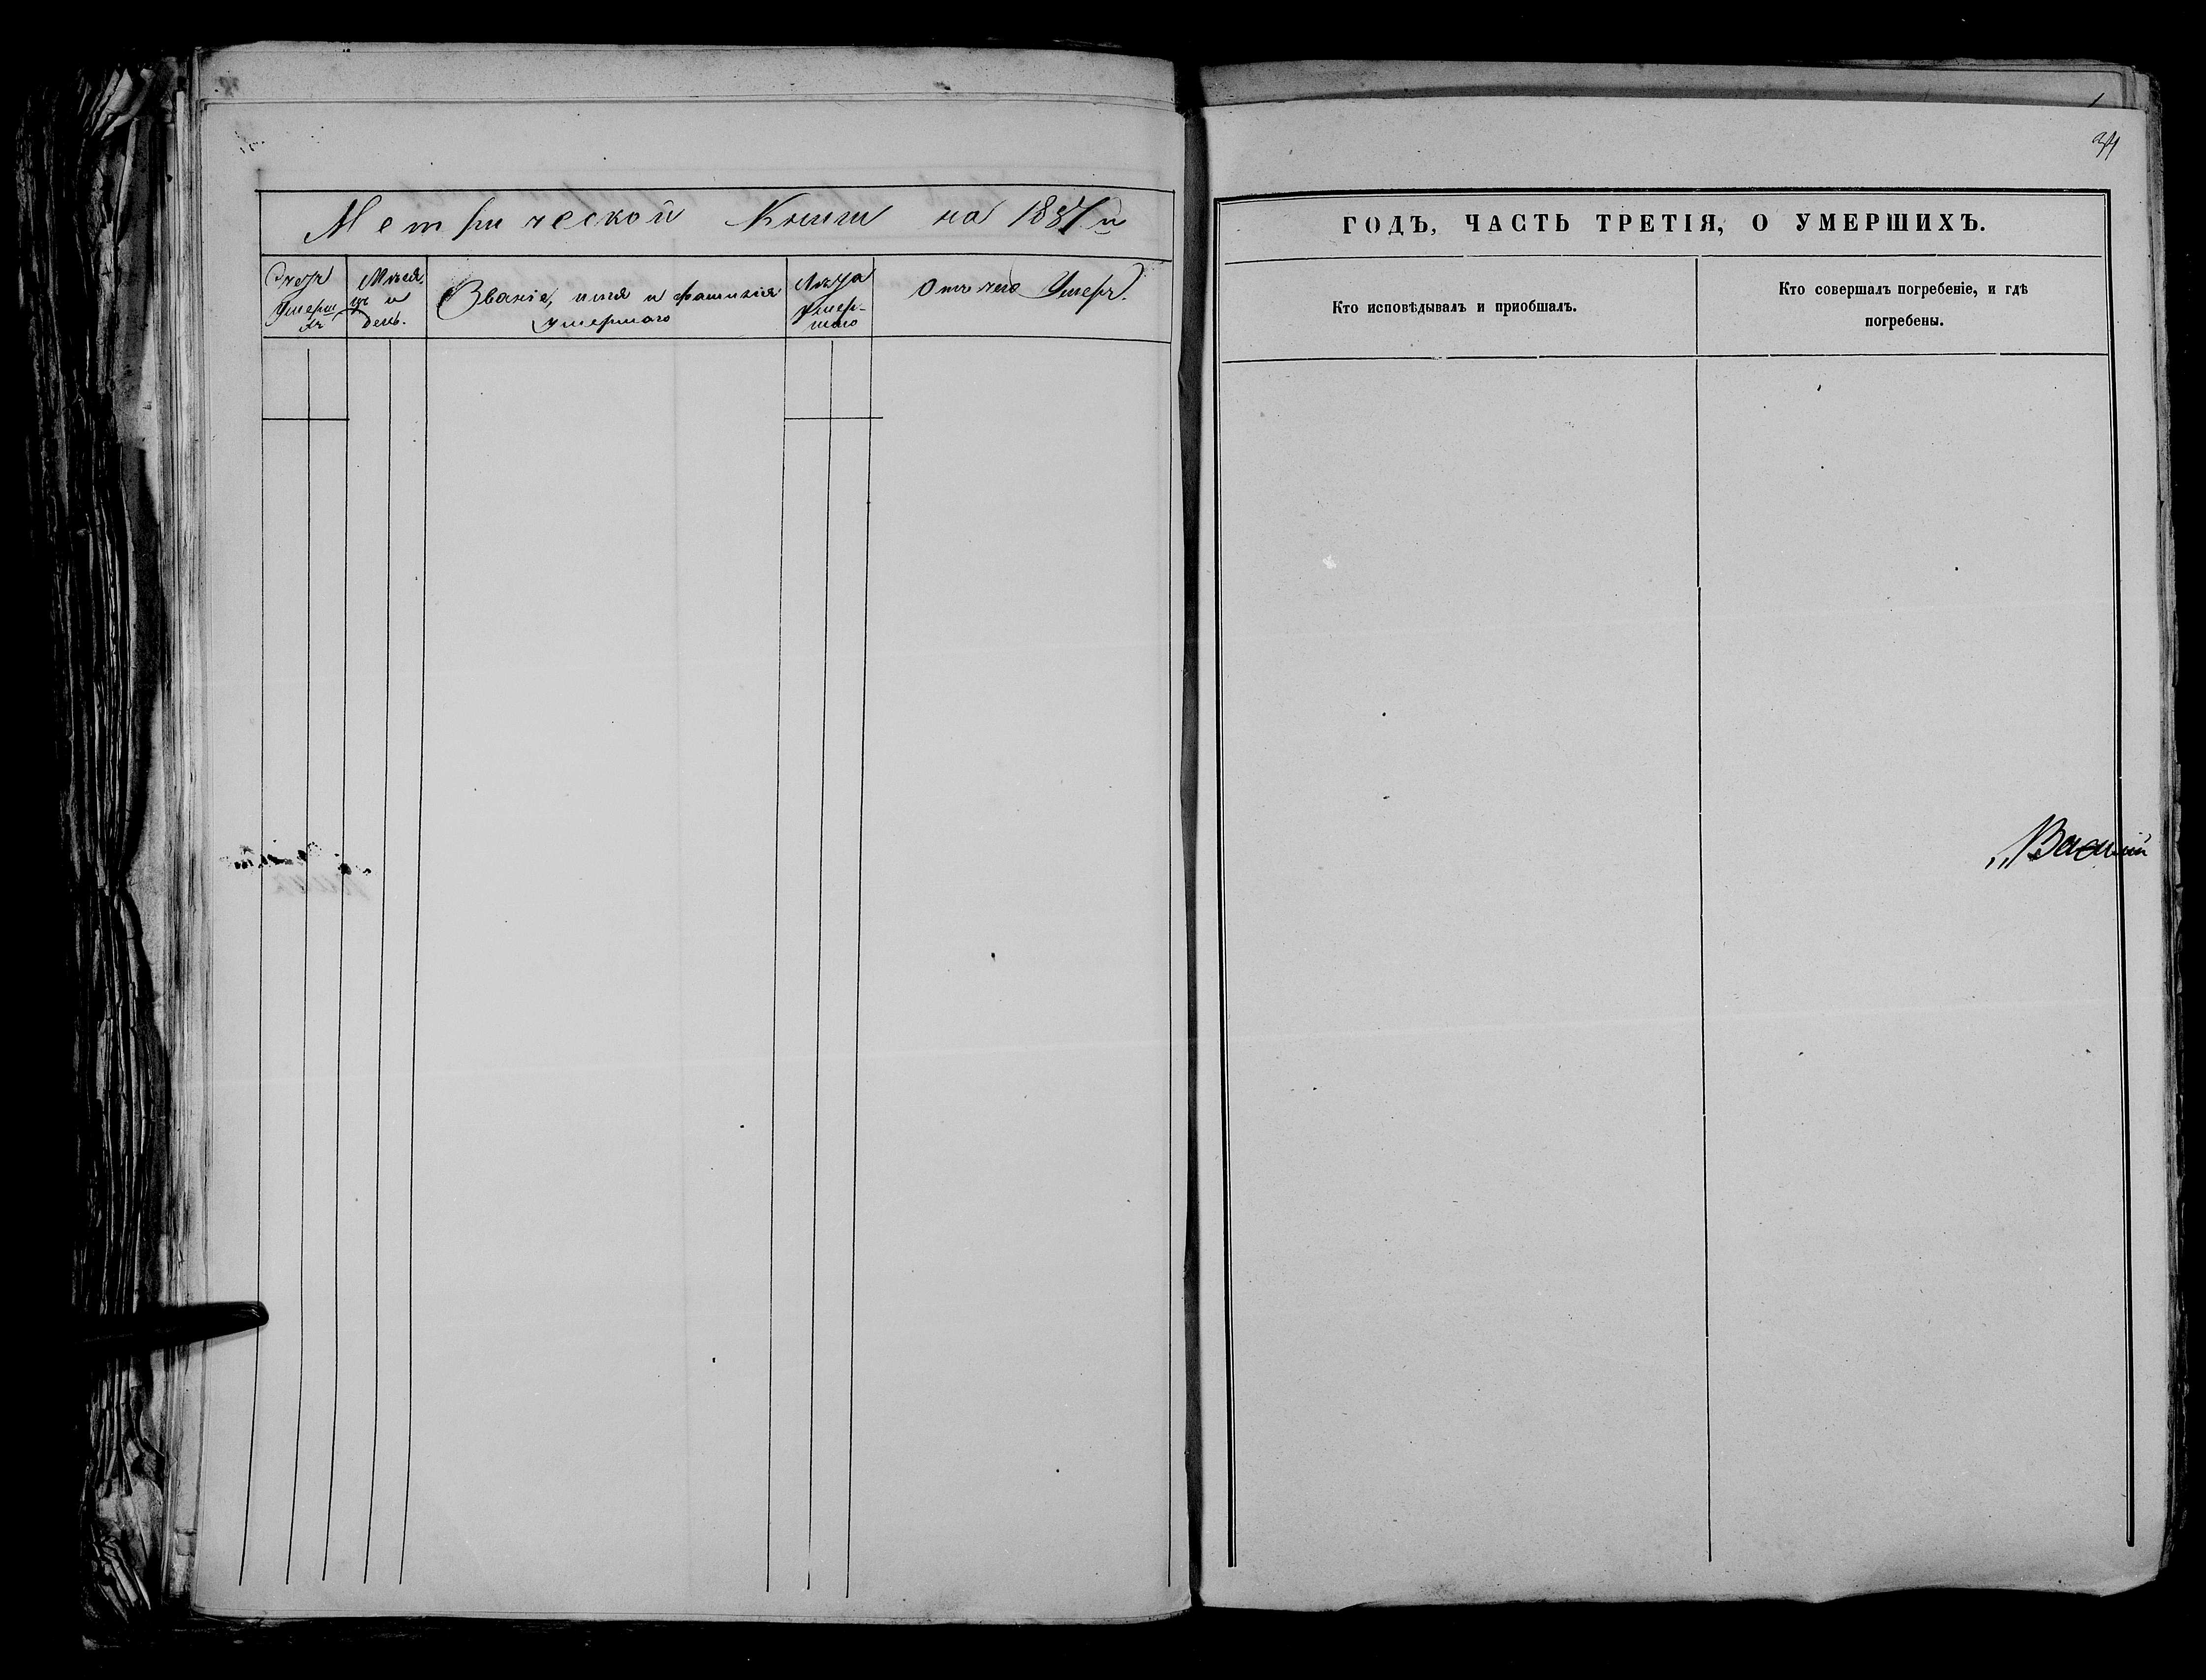 Метрической Книги на 1887й
Счетъ
Умерш
ихъ
Меся,
цъ и
день.
Званіе, имя и фамилія
умершаго
Лѣта
Умер-
шаго
Отъ чего Умеръ.
ГОДЪ, ЧАСТЬ ТРЕТІЯ, О УМЕРШИХЪ.
Кто исповѣдывалъ и приобшалъ.
Кто совершалъ погребеніе, и гдѣ
погребены.
Василій